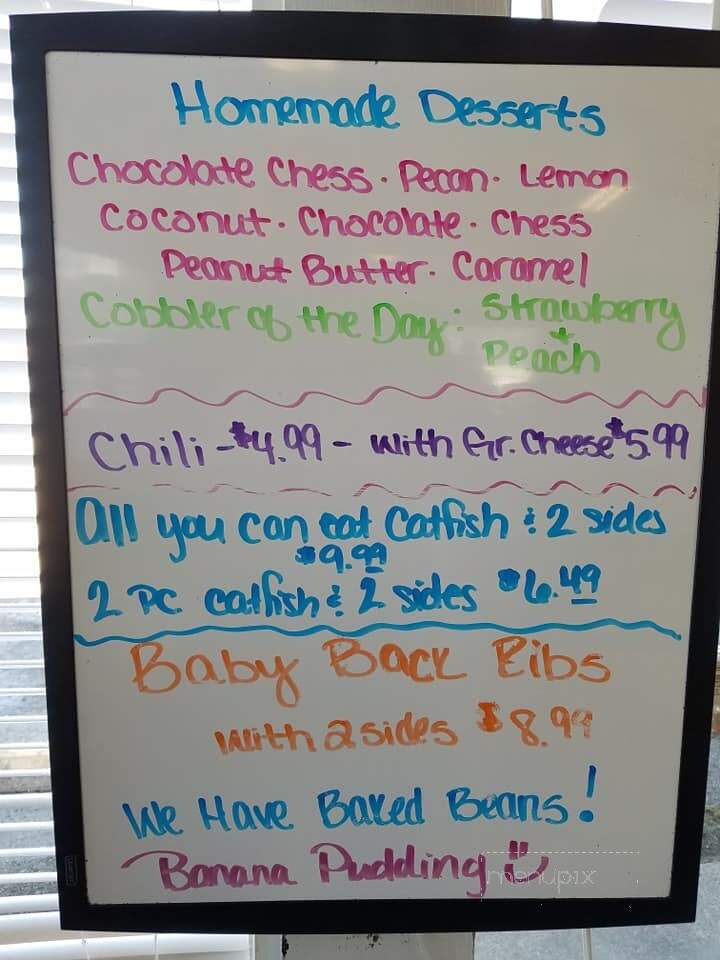 Homemade Desserts
Chocolate Chess · Pecan · Lemon
Coconut · Chocolate · Chess
Peanut Butter · Caramel
Cobbler of the Day: Strawberry
+
Peach
Chili - $4.99 - with Gr. Cheese $5.99
All you can eat Catfish & 2 sides
$9.99
2 PC catfish & 2 sides $6.49
Baby Back Ribs
with 2 sides $8.99
We Have Baked Beans!
Banana Pudding
menupix